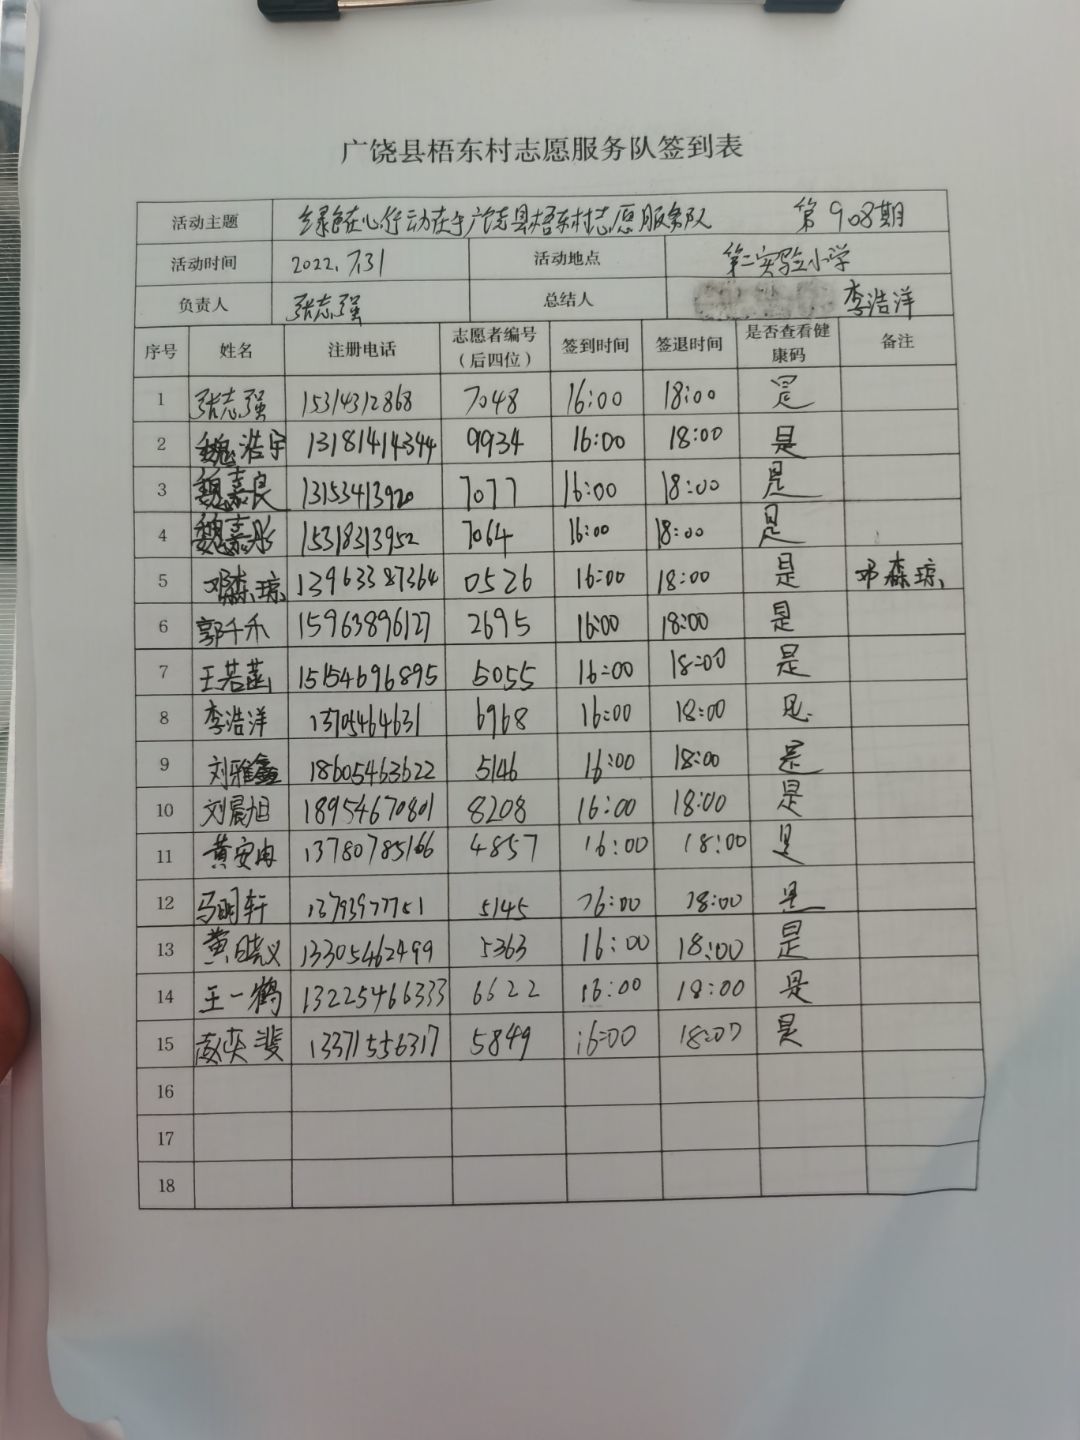 广饶县梧东村志愿服务队签到表
活动主题 绿色在心行动在手广饶县梧东村志愿服务队 第908期
活动时间 2022.7.31 活动地点 第二实验小学
负责人 张志强 总结人 李浩洋
序号 姓名 注册电话 志愿者编号（后四位） 签到时间 签退时间 是否查看健康码 备注
1 张志强 15314312868 7048 16:00 18:00 是
2 魏浩宇 13181414344 9934 16:00 18:00 是
3 魏嘉良 13153413920 7077 16:00 18:00 是
4 魏嘉彤 15318313952 7064 16:00 18:00 是
5 邓森琼 13963387364 0526 16:00 18:00 是 邓森琼
6 郭千禾 15963896127 2695 16:00 18:00 是
7 王若菡 15154696895 5055 16:00 18:00 是
8 李浩洋 13705464631 6968 16:00 18:00 是
9 刘雅鑫 18605463622 5146 16:00 18:00 是
10 刘晨旭 18954670801 8208 16:00 18:00 是
11 黄安冉 13780785166 4857 16:00 18:00 是
12 马明轩 13793977751 5145 16:00 18:00 是
13 黄晓义 13305462499 5363 16:00 18:00 是
14 王一鹤 13225466333 6622 16:00 18:00 是
15 13371556317 5849 16:00 18:00 是
16
17
18